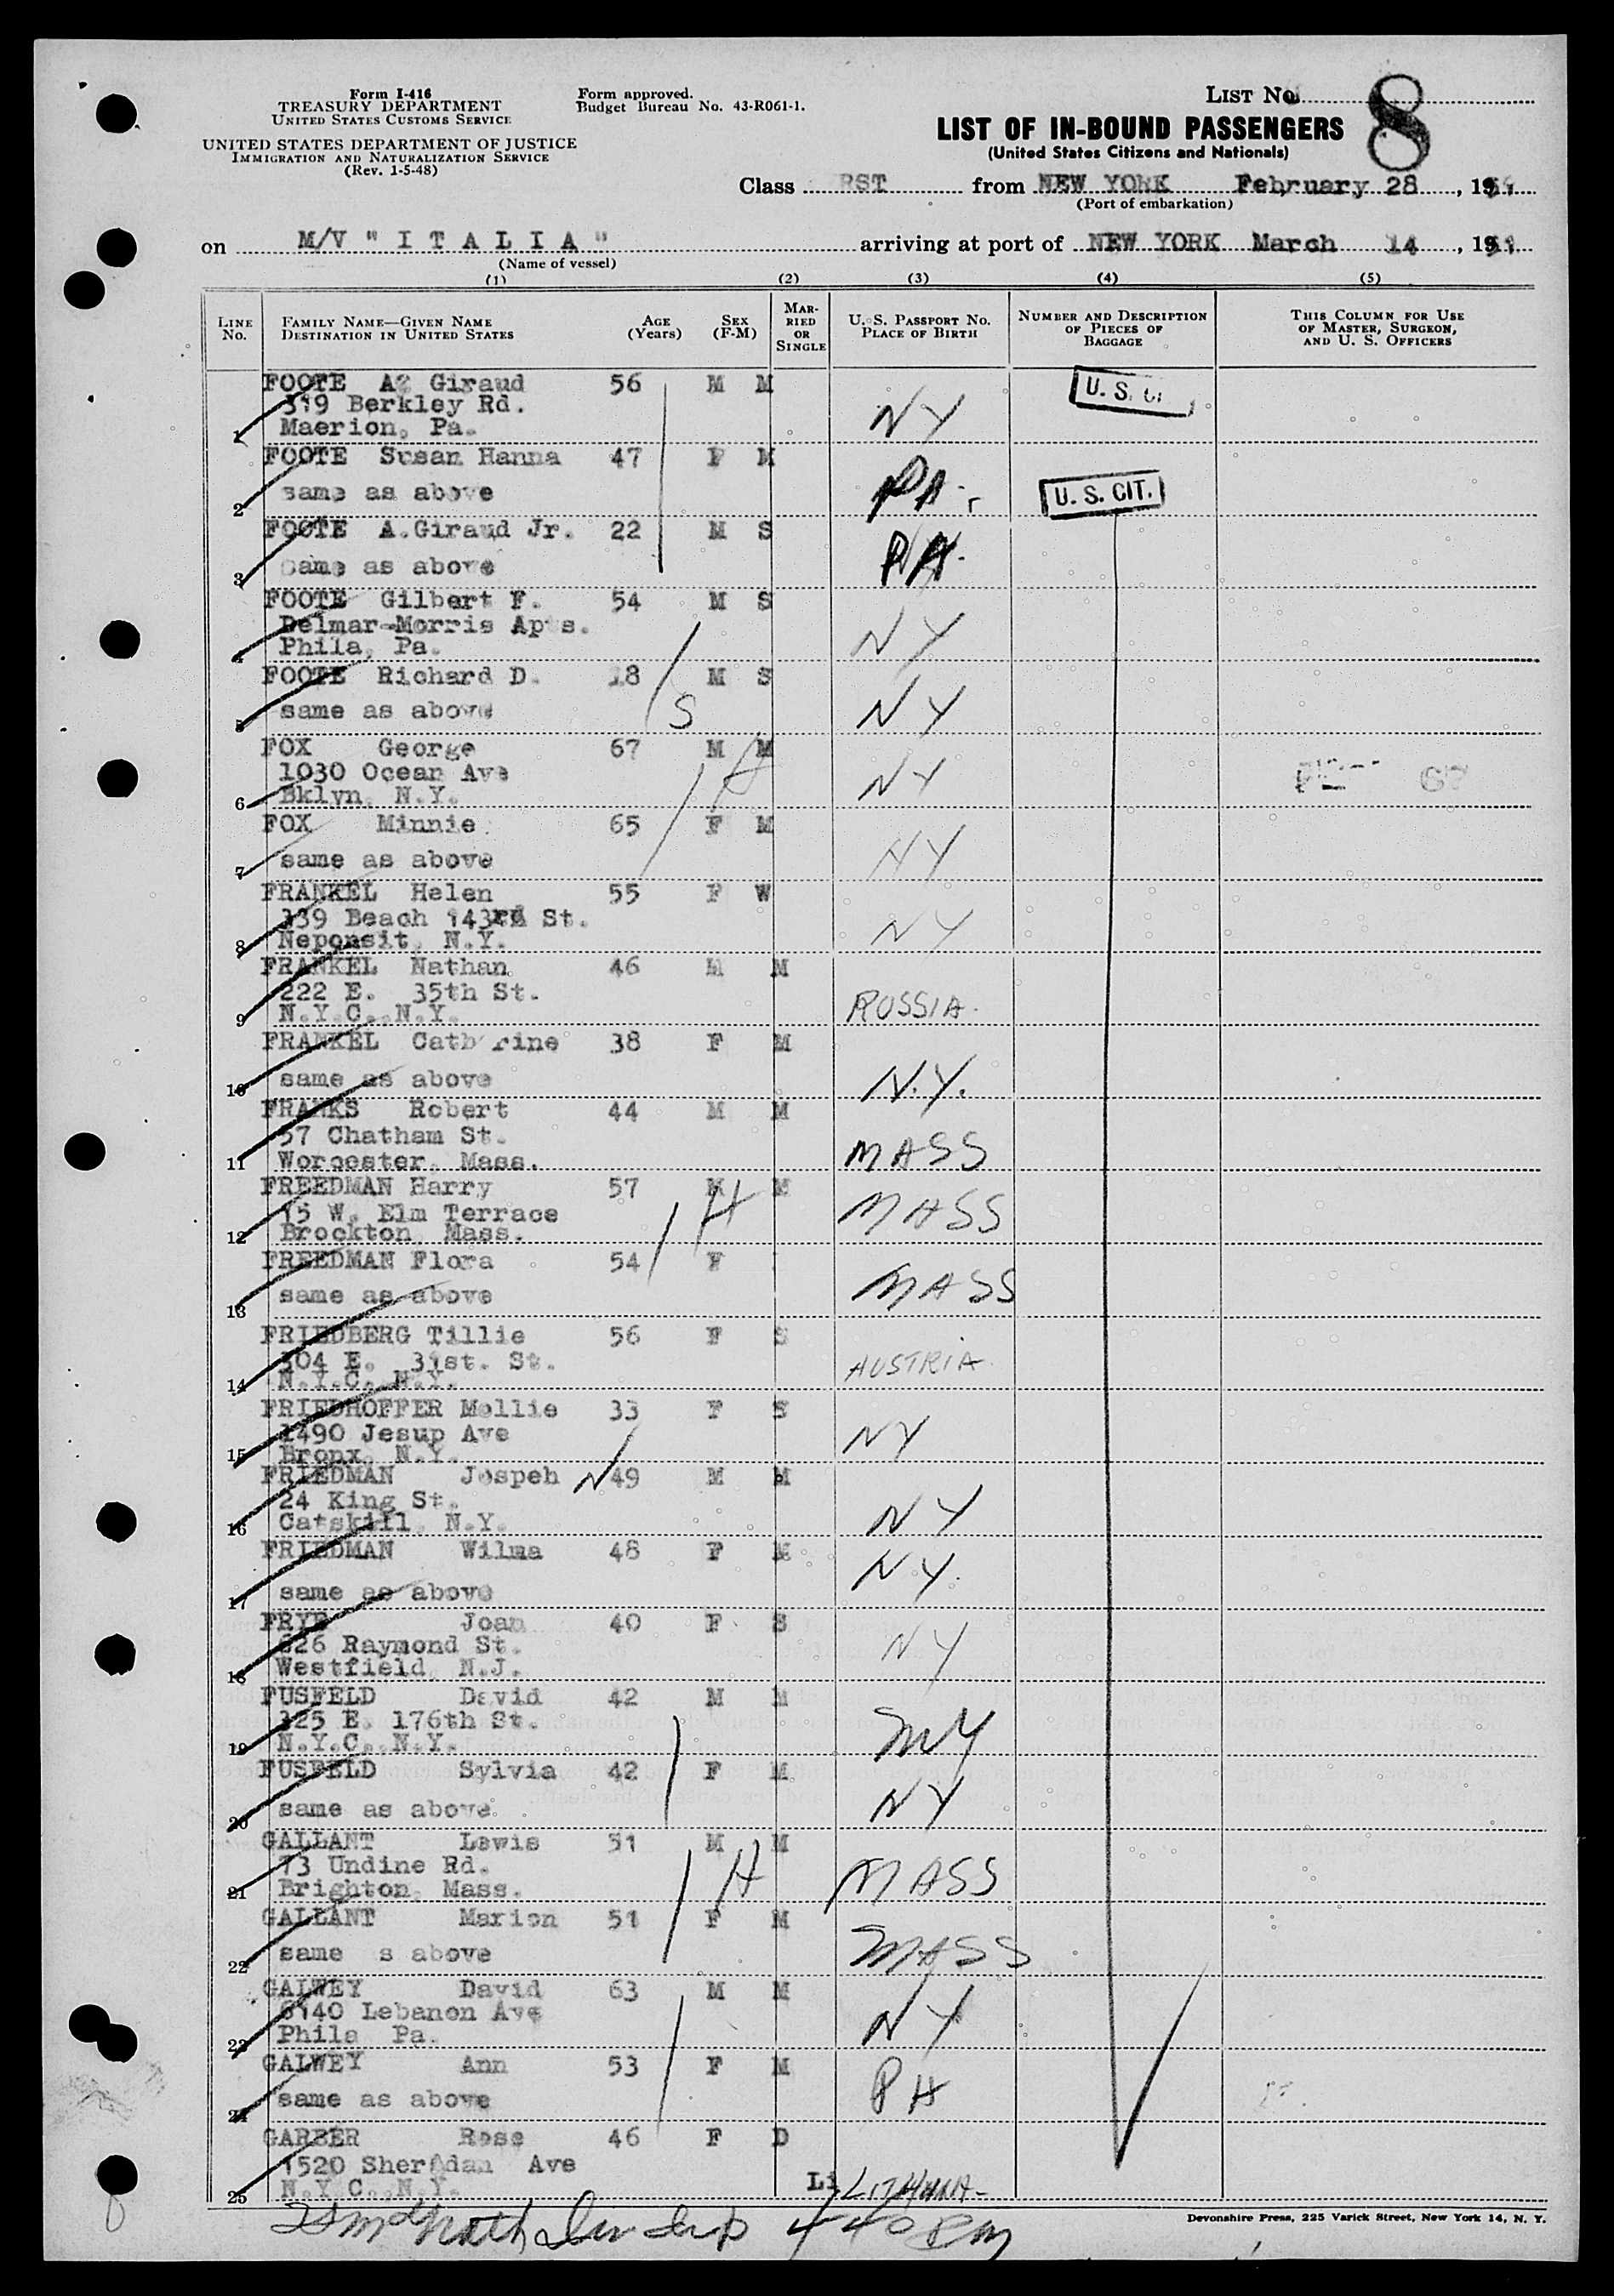 Form I-416
TREASURY DEPARTMENT
UNITED STATES CUSTOMS SERVICE
UNITED STATES DEPARTMENT OF JUSTICE
IMMIGRATION AND NATURALIZATION SERVICE
(Rev. 1-5-48)
Form approved.
Budget Bureau No. 43-R061-1.
LIST No. 8
LIST OF IN-BOUND PASSENGERS
(United States Citizens and Nationals)
Class RST from NEW YORK February 28, 19
(Port of embarkation)
on M/V "ITALIA" arriving at port of NEW YORK March 14, 19
(Name of vessel)
(1) (2) (3) (4) (5)
LINE No. FAMILY NAME—GIVEN NAME DESTINATION IN UNITED STATES AGE (Years) SEX (F-M) MARRIED OR SINGLE U. S. PASSPORT No. PLACE OF BIRTH NUMBER AND DESCRIPTION OF PIECES OF BAGGAGE THIS COLUMN FOR USE OF MASTER, SURGEON, AND U. S. OFFICERS
FOOTE Giraud 56 M M
319 Berkley Rd. NY U. S.
1 Maerion, Pa.
FOOTE Susan Hanna 47 F M
2 same as above PA. U. S. CIT.
FOOTE A.Giraud Jr. 22 M S
3 same as above PA.
FOOTE Gilbert F. 54 M S
Delmar-Morris Apts. NY
4 Phila, Pa.
FOOTE Richard D. 18 M S
5 same as above S NY
FOX George 67 M M
1030 Ocean Ave NY
6 Bklyn, N.Y.
FOX Minnie 65 F M
7 same as above NY
FRANKEL Helen 55 F W
339 Beach 143rd St. NY
8 Neponsit, N.Y.
FRANKEL Nathan 46 M M
222 E. 35th St. RUSSIA.
9 N.Y.C..N.Y.
FRANKEL Cath rine 38 F M
10 same as above N.Y.
FRANKS Robert 44 M M
57 Chatham St. MASS
11 Worcester, Mass.
FREEDMAN Harry 57 M M
15 W. Elm Terrace H MASS
12 Brockton, Mass.
FREEDMAN Flora 54 F
13 same as above MASS
FRIEDBERG Tillie 56 F S
304 E. 31st. St. AUSTRIA.
14 N.Y.C. N.Y.
FRIEDHOFFER Mollie 33 F S
1490 Jesup Ave NY
15 Bronx, N.Y.
FRIEDMAN Jospeh 49 M M
24 King St. NY
16 Catskill, N.Y.
FRIEDMAN Wilma 48 F M
17 same as above N.Y.
FRYE Joan 40 F S
626 Raymond St. NY
18 Westfield, N.J.
FUSFELD David 42 M M
325 E. 176th St. NY
19 N.Y.C..N.Y.
FUSFELD Sylvia 42 F M
20 same as above NY
GALLANT Lewis 51 M M
73 Undine Rd. H MASS
21 Brighton, Mass.
GALLANT Marion 51 F M
22 same s above MASS
GALWEY David 63 M M
6140 Lebanon Ave NY
23 Phila Pa.
GALWEY Ann 53 F M
24 same as above PA
GARBER Rose 46 F D
1520 Sheridan Ave
25 N.Y.C..N.Y. Li LITHUNA-
4 40 PM
Devonshire Press, 225 Varick Street, New York 14, N. Y.